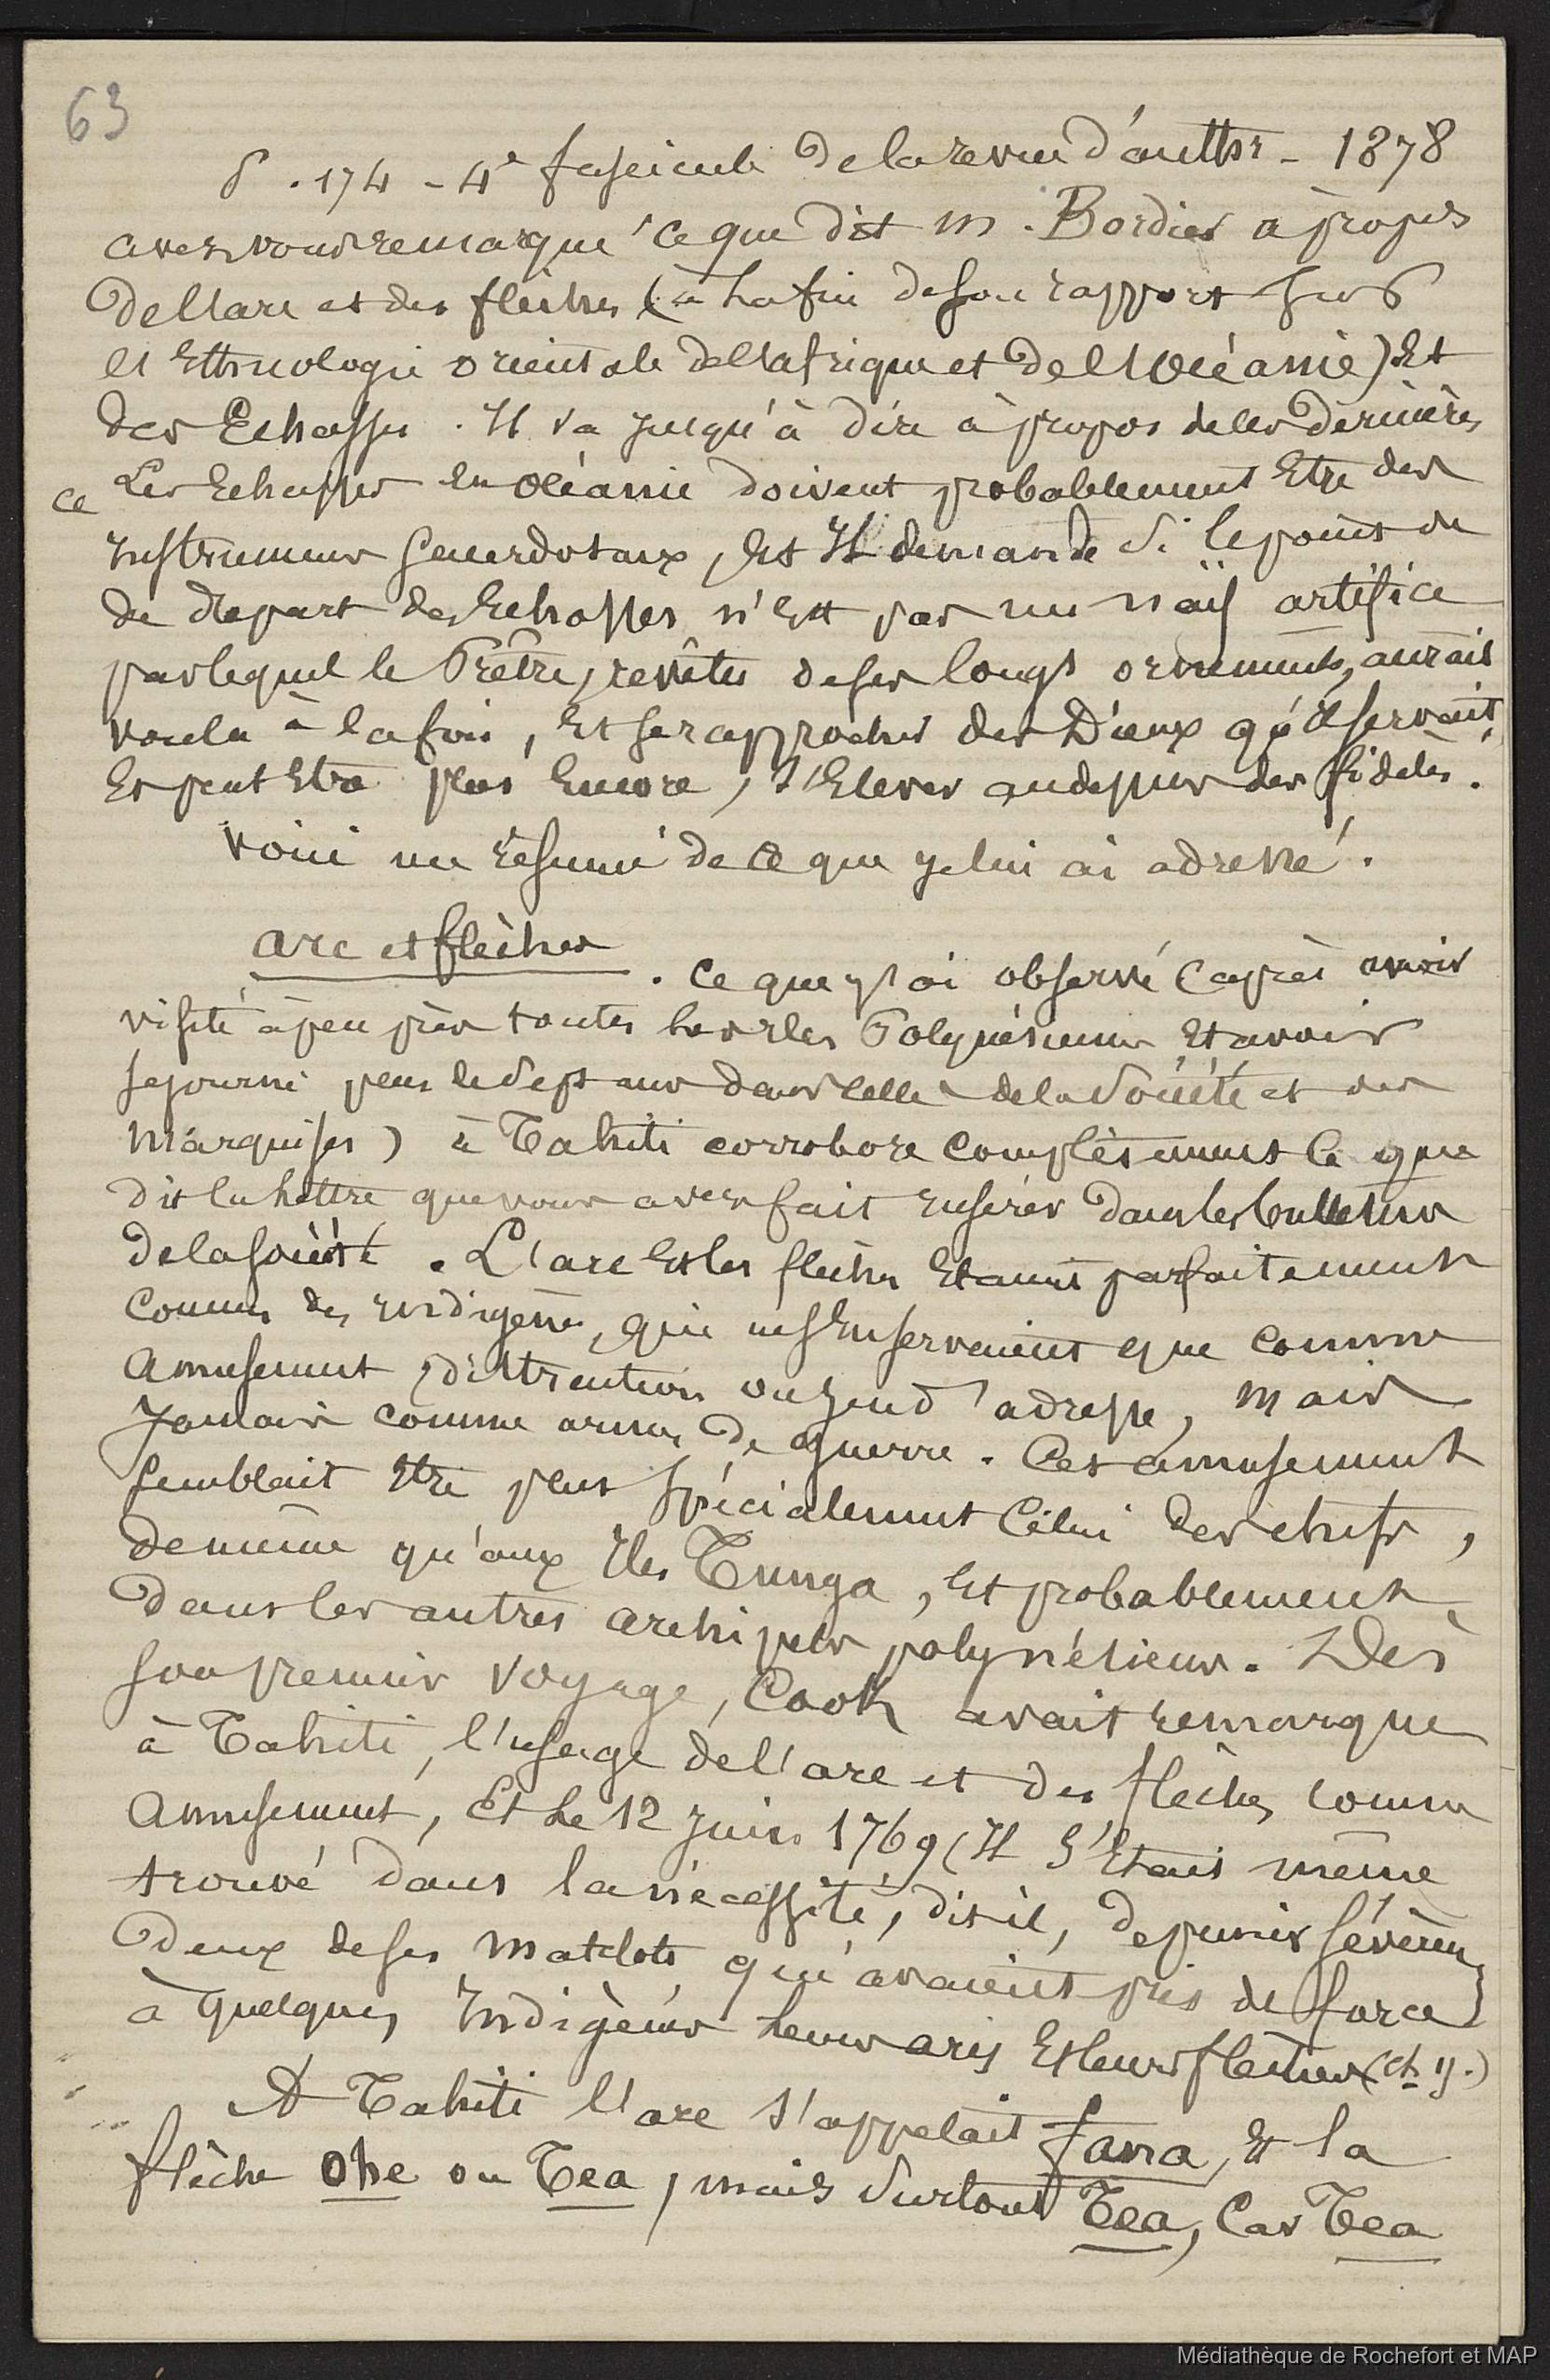 63
P. 174 - 4e fascicule de la revue d'anthr - 1878
avez vous remarqué ce que dit m. Bordier à propos
de l'arc et des flèches (à la fin de son rapport sur
l'Ethnologie orientale de l'afrique et de l'Océanie) Et
des Echasses. Il va jusqu'à dire à propos de ces dernières
ce Les Echasses en océanie doivent probablement Etre des
Instrumens sacerdotaux, Et Il demande si le point de
de départ des Echasses n'Est pas un naïf artifice
par lequel le Prêtre, revêtu de ses longs ornements, aurait
voulu à la fois, Et se rapprocher des Dieux qu'il servait,
Et peut Etre plus Encore, s'Elever au dessus des fidèles.
Voici un résumé de ce que je lui ai adressé.
arc et flèches. Ce que j'ai observé (après avoir
visité à peu près toutes les Iles Polynésiennes Et avoir
séjourné plus de sept ans dans celles de la Société et des
Marquises) à Tahiti corrobore complètement ce que
dit la lettre que vous avez fait Insérer dans les bulletins
de la société. L'arc Et les flèches Etaient parfaitement
connus des Indigènes, qui ne s'En servaient que comme
amusement, distraction ou jeu d'adresse, mais
Jamais comme armes de guerre. Cet amusement
semblait Etre plus spécialement celui des chefs,
de même qu'aux Iles Tunga, Et probablement
dans les autres archipels polynésiens. Dès
son premier voyage, Cook avait remarqué
à Tahiti, l'usage de l'arc et des flèches comme
amusement, Et le 12 juin 1769 (Il s'Etait même
trouvé dans la nécessité, dit-il, de punir sévèrem
deux de ses matelots qui avaient pris de force
à quelques Indigènes leurs arcs Et leurs flèches (ch y.)
A Tahiti l'arc s'appelait fana, Et la
flèche ohe ou Tea, mais surtout Tea, Car Tea
Médiathèque de Rochefort et MAP